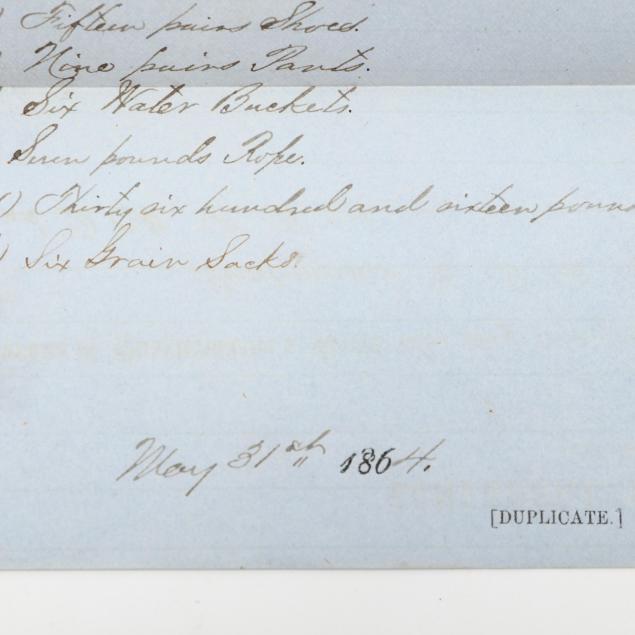 ) Fifteen pairs Shoes.
) Nine pairs Pants.
) Six Water Buckets.
Seven pounds Rope.
0) Thirty six hundred and sixteen pound
) Six Grain Sacks.
May 31st 1864.
[DUPLICATE.]